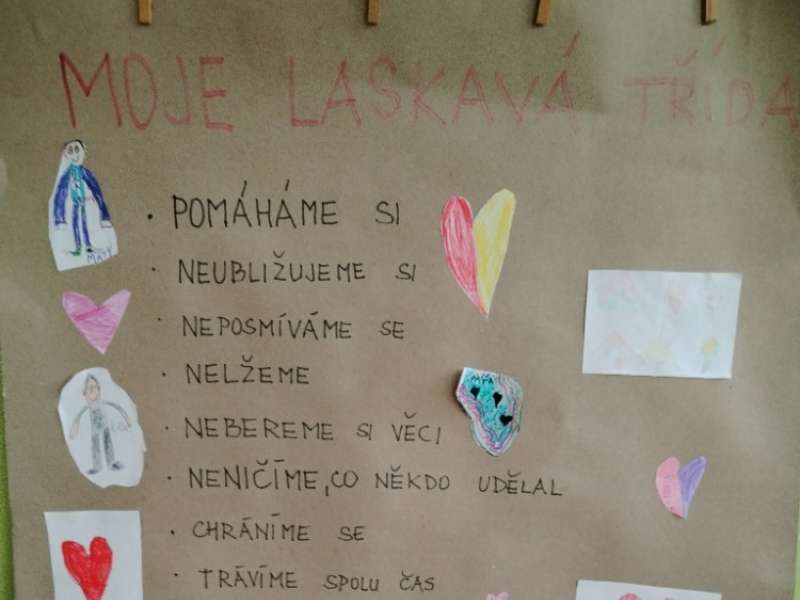 MOJE LASKAVÁ TŘÍDA
• POMÁHÁME SI
• NEUBLIŽUJEME SI
• NEPOSMÍVÁME SE
• NELŽEME
• NEBEREME SI VĚCI
• NENIČÍME, CO NĚKDO UDĚLAL
• CHRÁNÍME SE
• TRÁVÍME SPOLU ČAS